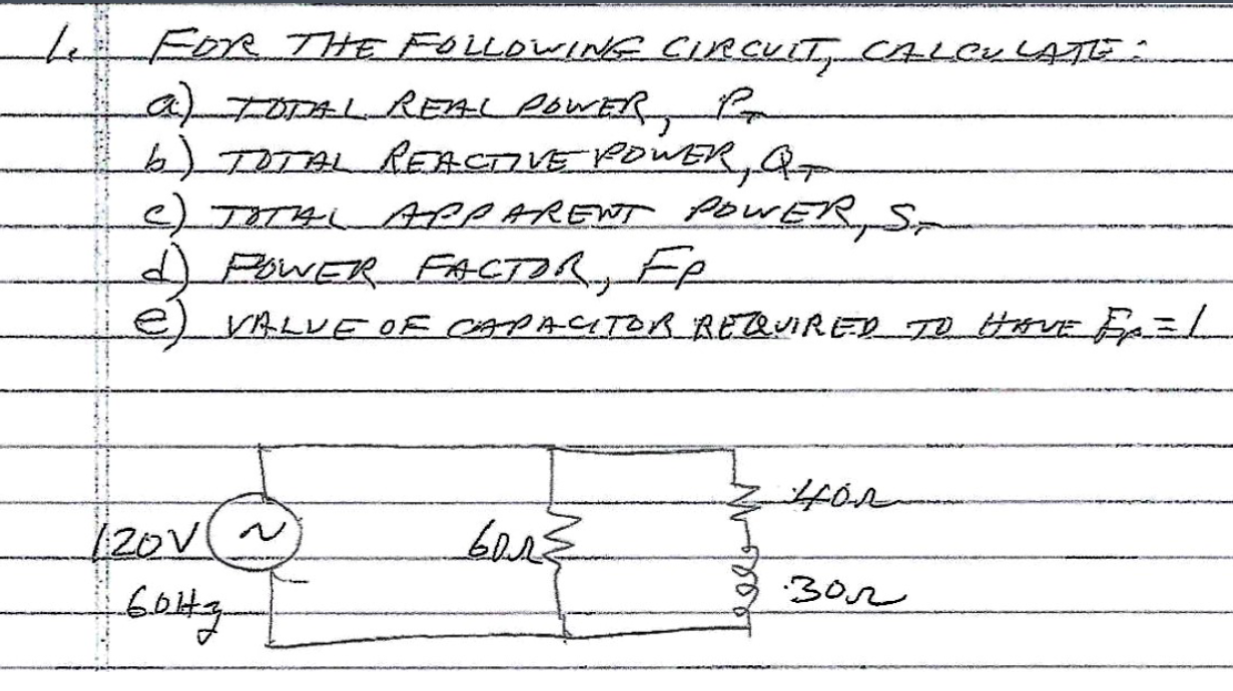 1. FOR THE FOLLOWING CIRCUIT, CALCULATE:
a) TOTAL REAL POWER, PT
b) TOTAL REACTIVE POWER, QT
c) TOTAL APPARENT POWER, ST
d) POWER FACTOR, FP
e) VALUE OF CAPACITOR REQUIRED TO HAVE FP = 1
40Ω
120V ~ 60Ω
60Hz 30Ω